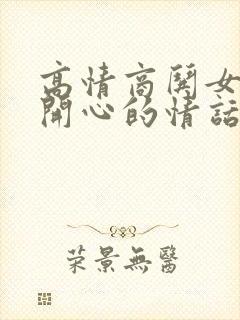 高情商鬨女
開心的情話
荣景無醫